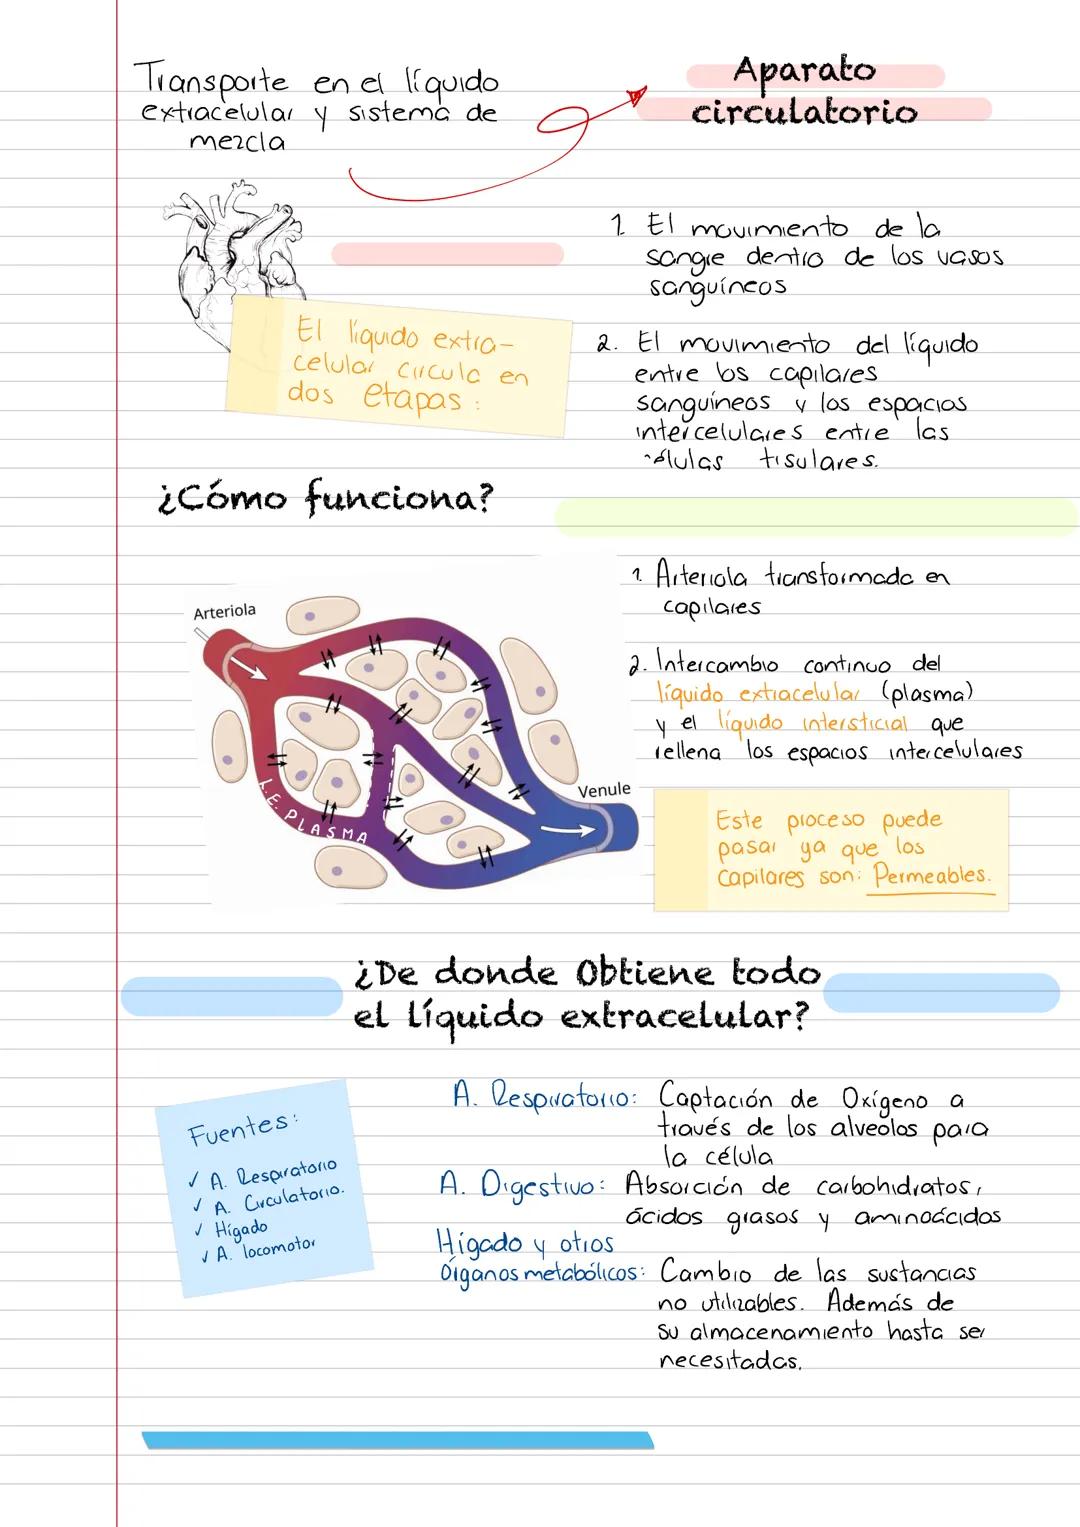 Transporte en el líquido
extracelular y sistema de
mezcla
Aparato
circulatorio
1. El movimiento de la
sangre dentro de los vasos
sanguíneos
El líquido extra-
celular circula en
dos etapas:
2. El movimiento del líquido
entre los capilares
sanguíneos y los espacios
intercelulares entre las
células tisulares.
¿Cómo funciona?
Arteriola
Venule
L.E. PLASMA
1. Arteriola transformada en
capilares
2. Intercambio continuo del
líquido extracelular (plasma)
y el líquido intersticial que
rellena los espacios intercelulares
Este proceso puede
pasar ya que los
capilares son: Permeables.
¿De donde Obtiene todo
el líquido extracelular?
Fuentes:
✓ A. Respiratorio
✓ A. Circulatorio.
✓ Hígado
✓ A. locomotor
A. Respiratorio: Captación de Oxígeno a
través de los alveolos para
la célula
A. Digestivo: Absorción de carbohidratos,
ácidos grasos y aminoácidos
Hígado y otros
Órganos metabólicos: Cambio de las sustancias
no utilizables. Además de
su almacenamiento hasta ser
necesitadas.